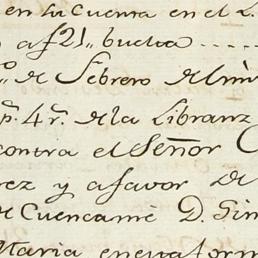 en la Cuenta en el L
y a f 21,, buelta ......
o de Febrero del mi
p.s 4 r.s de la Libranz
contra el Señor C
rez y a favor de
de Cuencamé D. Sim
Maria en esta form